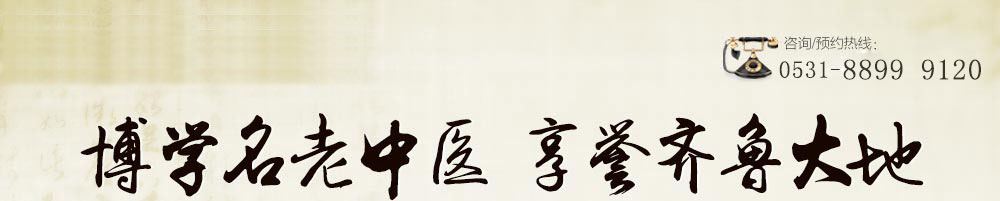 咨询/预约热线:
0531-8899 9120
博学名老中医 享誉齐鲁大地